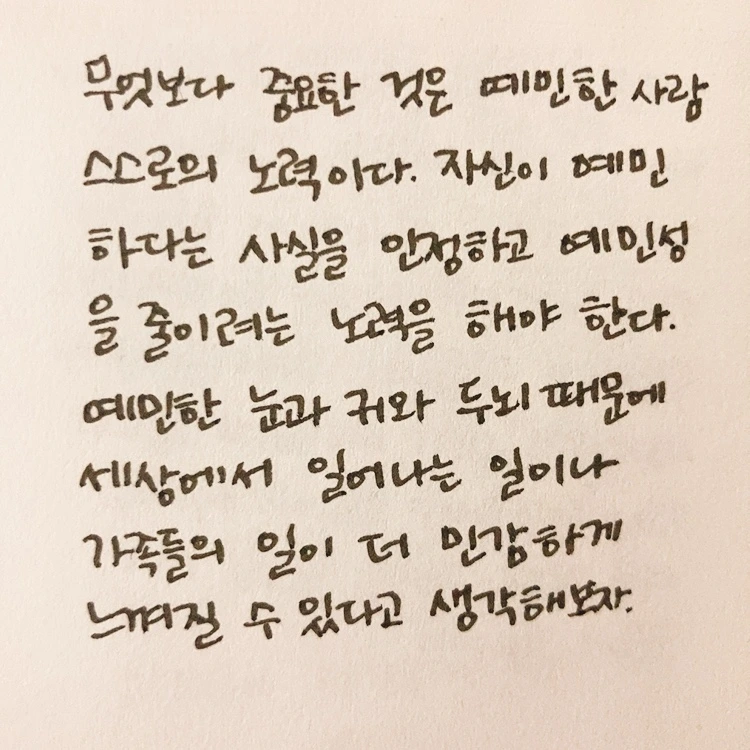 무엇보다 중요한 것은 예민한 사람
스스로의 노력이다. 자신이 예민
하다는 사실을 인정하고 예민성
을 줄이려는 노력을 해야 한다.
예민한 눈과 귀와 두뇌 때문에
세상에서 일어나는 일이나
가족들의 일이 더 민감하게
느껴질 수 있다고 생각해보자.